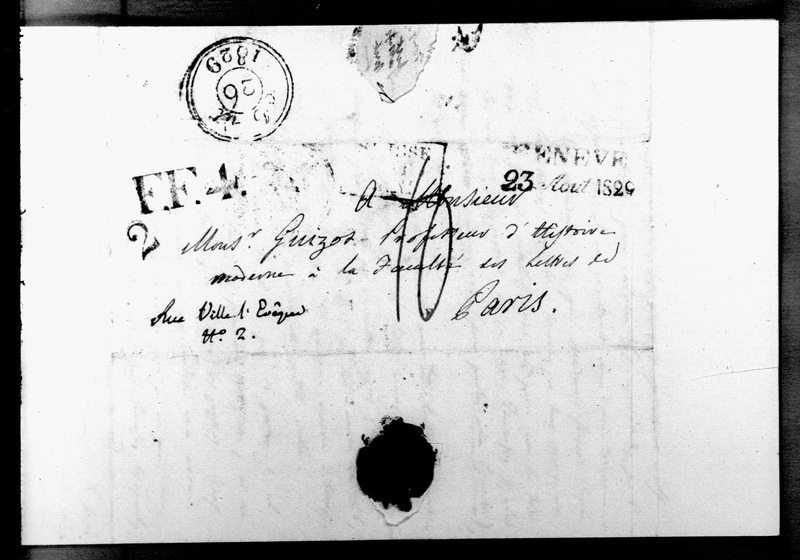 1829
26
SUISSE
GENEVE
23 Aout 1829
F.F.4.
2
A Monsieur
Monsr Guizot Professeur d'Histoire
moderne à la Faculté des Lettres de
Paris.
Rue Ville l'Evêque
No 2.